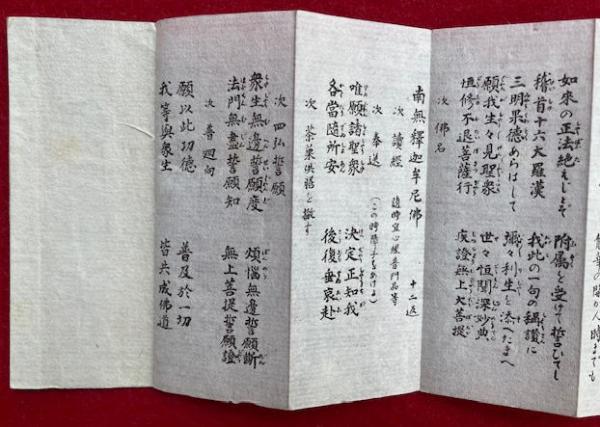 如來の正法絶えじとぞ 附屬を受けて誓ひてし
稽首十六大羅漢 我此の一句の稱讃に
三明果德あらはして 彌々利生を添へたまへ
願我生々見聖衆 世々恒聞深妙典
恒修不退菩薩行 疾證無上大菩提
次 佛名
南無釋迦牟尼佛 十二返
次 讀經 隨時宜心經普門品等
次 奉送
唯願諸聖衆 決定正知我
各當隨所安 後復垂哀赴
次 茶菓供語を撤す
次 四弘誓願
衆生無邊誓願度 煩惱無邊誓願斷
法門無盡誓願知 無上菩提誓願證
次 普廻向
願以此功德 普及於一切
我等與衆生 皆共成佛道